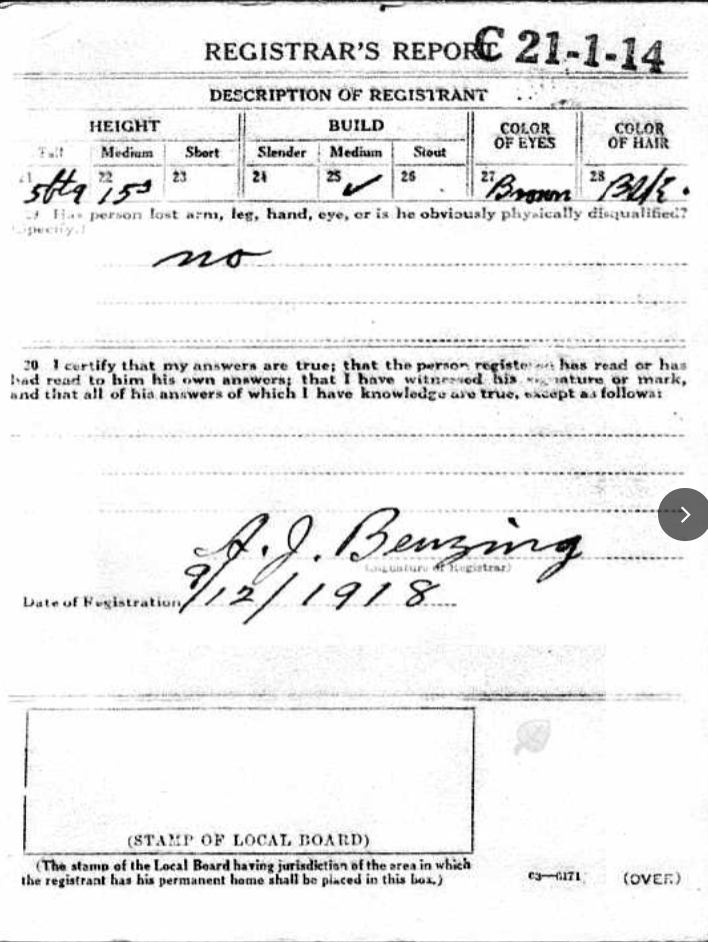 REGISTRAR'S REPORT C 21-1-14
DESCRIPTION OF REGISTRANT
HEIGHT BUILD COLOR OF EYES COLOR OF HAIR
Tall Medium Short Slender Medium Stout
21 22 23 24 25 ✓ 26 27 Brown 28 Blk.
29 Has person lost arm, leg, hand, eye, or is he obviously physically disqualified?
(Specify.)
no
30 I certify that my answers are true; that the person registered has read or has
had read to him his own answers; that I have witnessed his signature or mark,
and that all of his answers of which I have knowledge are true, except as follows:
A. J. Benzing
(Signature of Registrar)
Date of Registration 9/12/1918
(STAMP OF LOCAL BOARD)
(The stamp of the Local Board having jurisdiction of the area in which
the registrant has his permanent home shall be placed in this box.)
03—6171 (OVER)